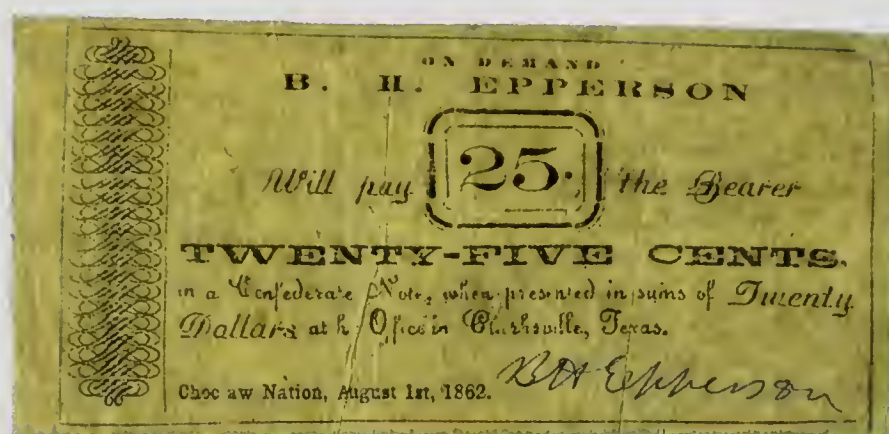 ON DEMAND
B. H. EPPERSON
Will pay 25. the Bearer
TWENTY-FIVE CENTS.
in a Confederate Note, when presented in sums of Twenty
Dollars at h Office in Clarksville, Texas.
Choc aw Nation, August 1st, 1862. B H Epperson